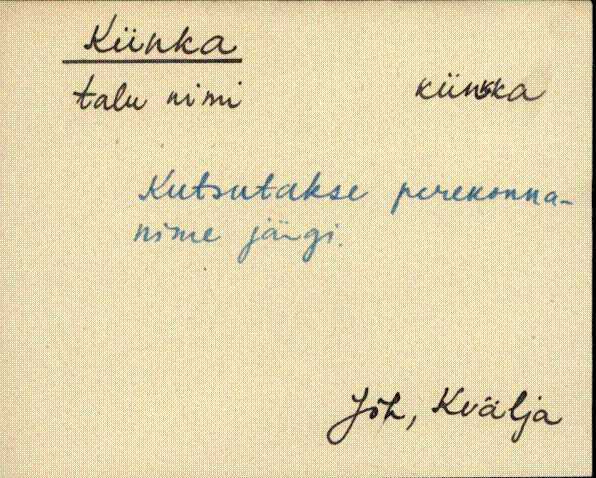 Kiinka
talu nimi kiinka
Kutsutakse perekonna-
nime järgi.
Jõh, Kvälja